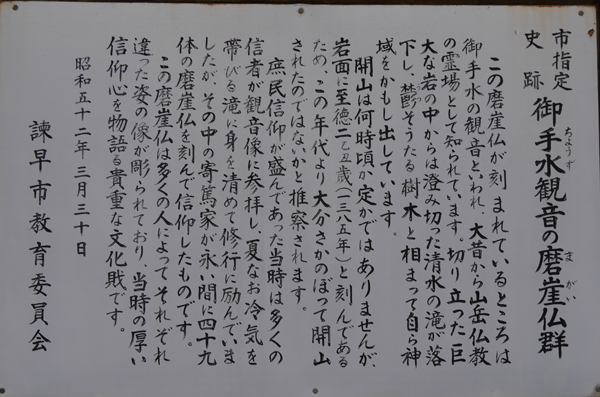 市指定
史跡 御手水観音の磨崖仏群
ちょうず
まがい
この磨崖仏が刻まれているところは
御手水の観音といわれ、大昔から山岳仏教
の霊場として知られています。切り立った巨
大な岩の中からは澄み切った清水の滝が落
下し、欝そうたる樹木と相まって自ら神
域をかもし出しています。
開山は何時頃か定かではありませんが、
岩面に至徳二乙丑歳(一三八五年)と刻んである
ため、この年代より大分さかのぼって開山
されたのではないかと推察されます。
庶民信仰が盛んであった当時は多くの
信者が観音像に参拝し、夏なお冷気を
帯びる滝に身を清めて修行に励んでいま
したが、その中の寄篤家が永い間に四十九
体の磨崖仏を刻んで信仰したものです。
この磨崖仏は多くの人によってそれぞれ
違った姿の像が彫られており、当時の厚い
信仰心を物語る貴重な文化財です。
昭和五十二年三月三十日
諫早市教育委員会